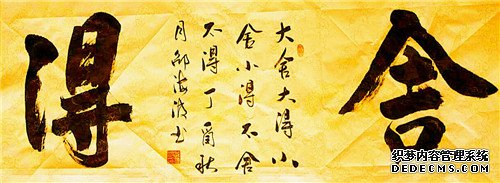 舍
大舍大得小
舍小得不舍
不得丁酉秋
月海书
得
织梦内容管理系统
DEDECMS.COM